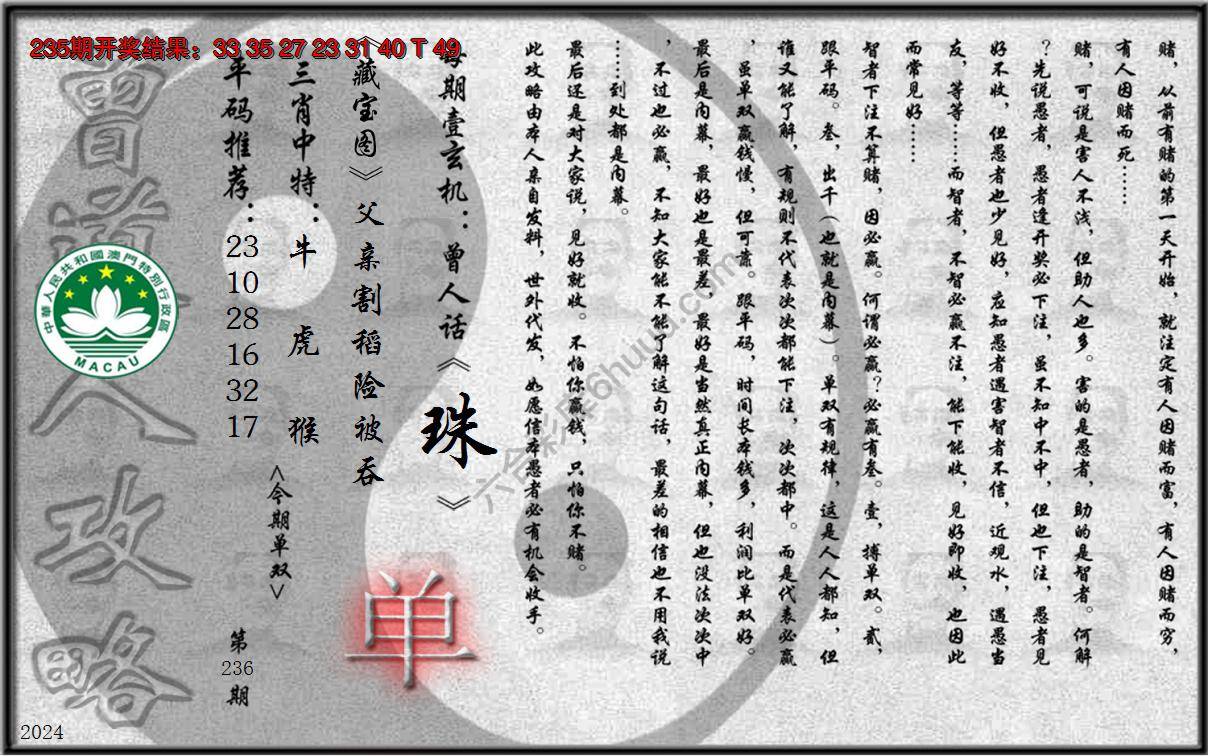 235期开奖结果：33 35 27 23 31 40 T 49
赌，从前有赌的第一天开始，就注定有人因赌而富，有人因赌而穷，
有人因赌而死……
赌，可说是害人不浅，但助人也多。害的是愚者，助的是智者。何解
？先说愚者，愚者逢开奖必下注，虽不知中不中，但也下注，愚者见
好不收，但愚者也少见好，应知愚者遇害智者不信，近观水，遇愚当
友，等等……而智者，不智必赢不注，能下能收，见好即收，也因此
而常见好……
智者下注不算赌，因必赢。何谓必赢？必赢有叁。壹，搏单双。贰，
跟平码。叁，出千（也就是内幕）。单双有规律，这是人人都知，但
谁又能了解，有规则不代表次次都能下注，次次都中。而是代表必赢
，虽单双赢钱慢，但可靠。跟平码，时间长本钱多，利润比单双好。
最后是内幕，最好也是最差，最好是当然真正内幕，但也没法次次中
，不过也必赢，不知大家能不能了解这句话，最差的相信也不用我说
……到处都是内幕。
最后还是对大家说，见好就收。不怕你赢钱，只怕你不赌。
此攻略由本人亲自发料，世外代发，如愿信本愚者必有机会收手。
每期壹玄机：曾人话《珠》
《藏宝图》父亲割稻险被吞
三肖中特：牛 虎 猴
<今期单双>
单
平码推荐：
23
10
28
16
32
17
第
236
期
曾道人攻略
中華人民共和國澳門特別行政區
MACAU
2024